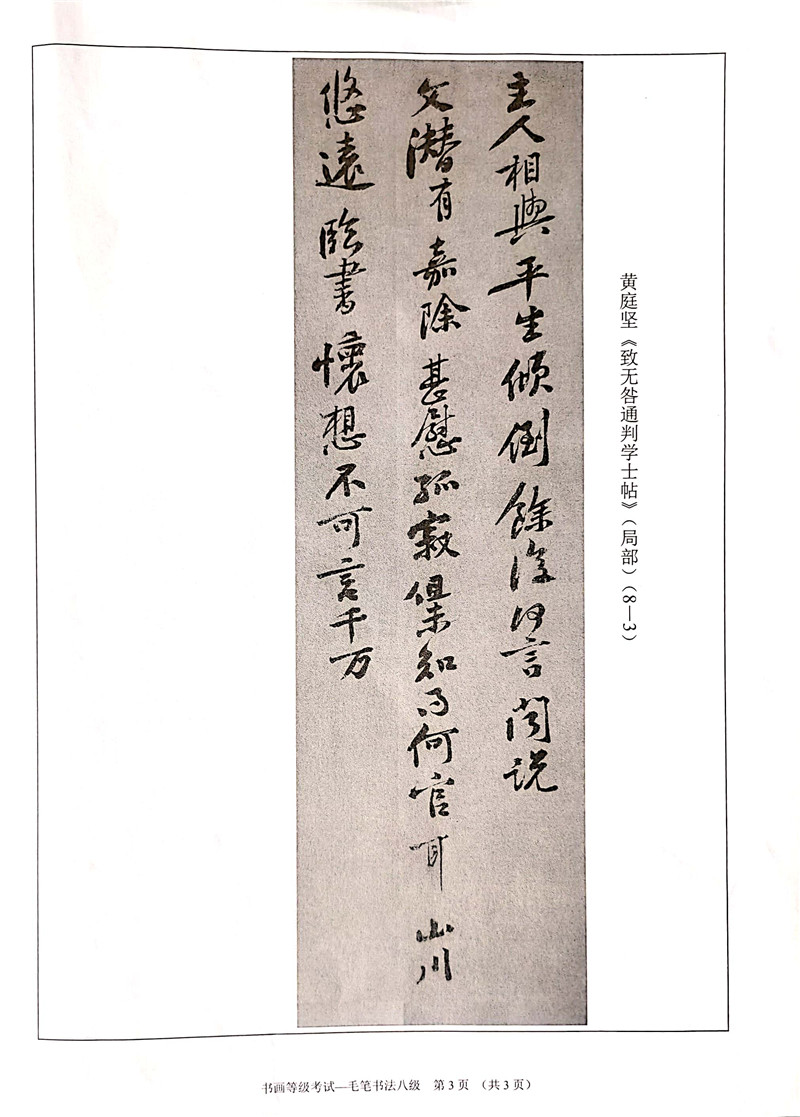 黄庭坚《致无咎通判学士帖》（局部）（8—3）
主人相與平生傾倒餘復何言聞説
文潛有嘉除甚慰孤寂但未知得何官耳山川
悠遠臨書懷想不可言千万
书画等级考试—毛笔书法八级 第3页 （共3页）